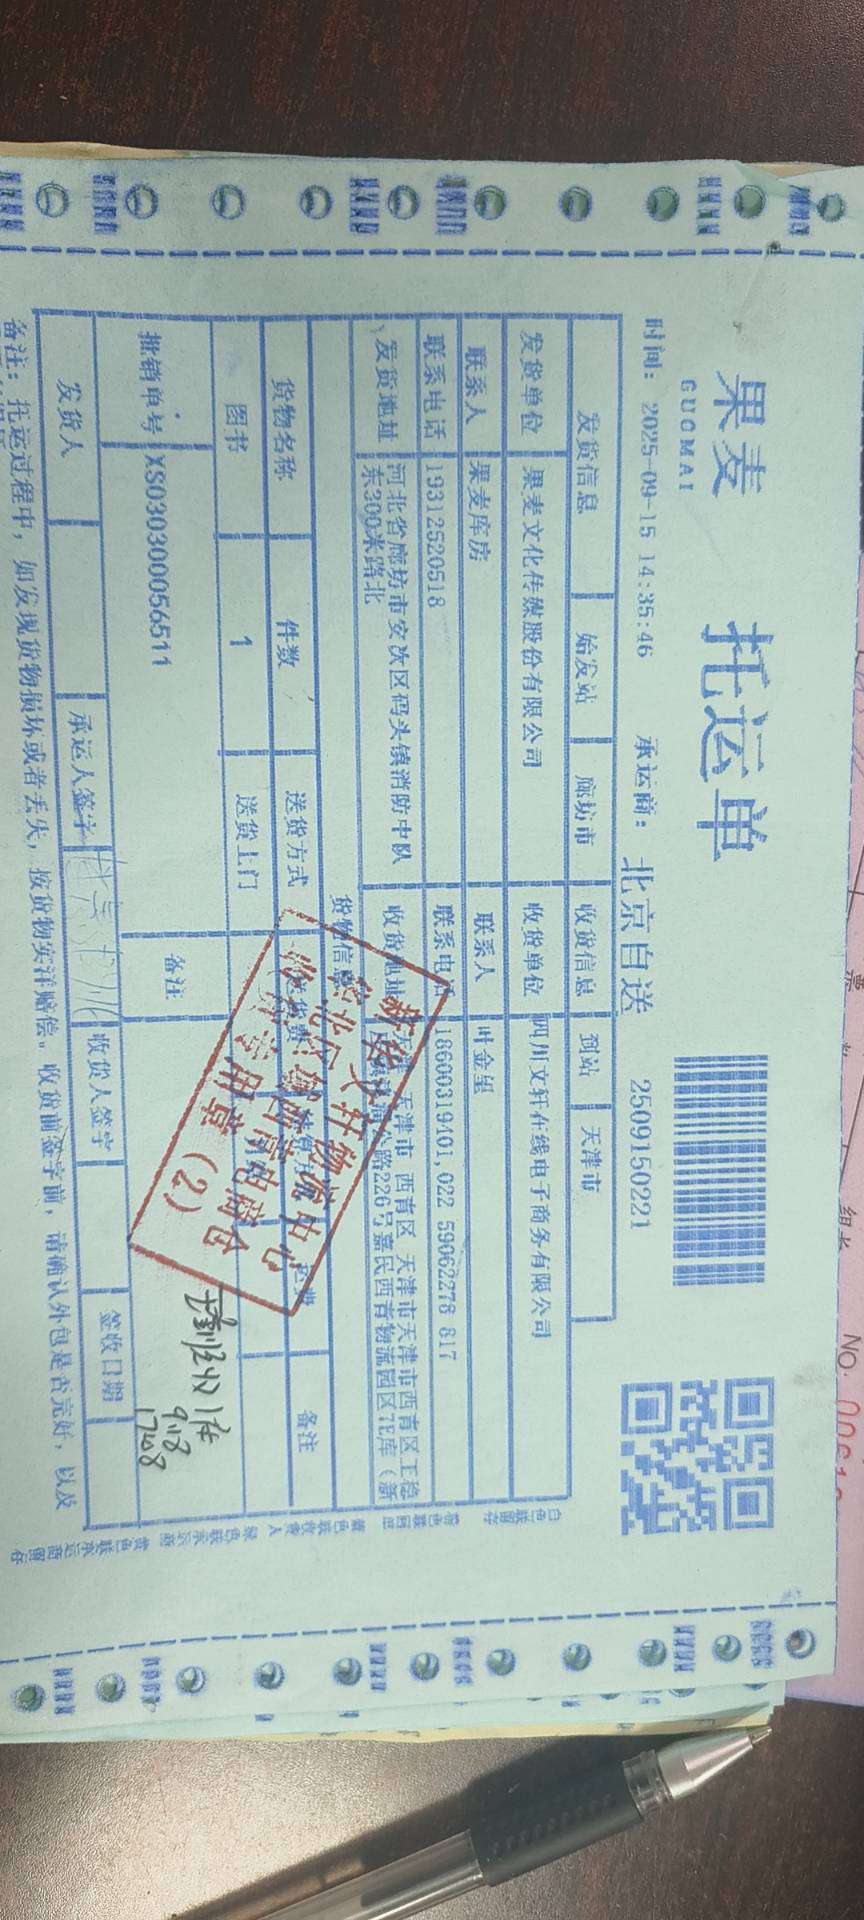 果麦
GUOMAI
托运单
时间: 2025-09-15 14:35:46
承运商: 北京自送
2509150221
发货信息 始发站 廊坊市 收货信息 到站 天津市
发货单位 果麦文化传媒股份有限公司 收货单位 四川文轩在线电子商务有限公司
联系人 果麦库房 联系人 叶金望
联系电话 19312520518 联系电话 18600319401,022 59062278 817
发货地址 河北省廊坊市安次区码头镇消防中队
东300米路北
收货地址 天津市 西青区 天津市天津市西青区王稳
公路226号嘉民西青物流园区7E库（新
货物信息
货物名称 件数 送货方式 送货费 运费 备注
图书 1 送货上门
批销单号 XS030300056511 备注
发货人 承运人签字 收货人签字 签收日期
备注: 托运过程中, 如发现货物损坏或者丢失, 按货物实洋赔偿。收货前签字前, 请确认外包是否完好, 以及
新华文轩物流中心
(2)
9.18
NO.